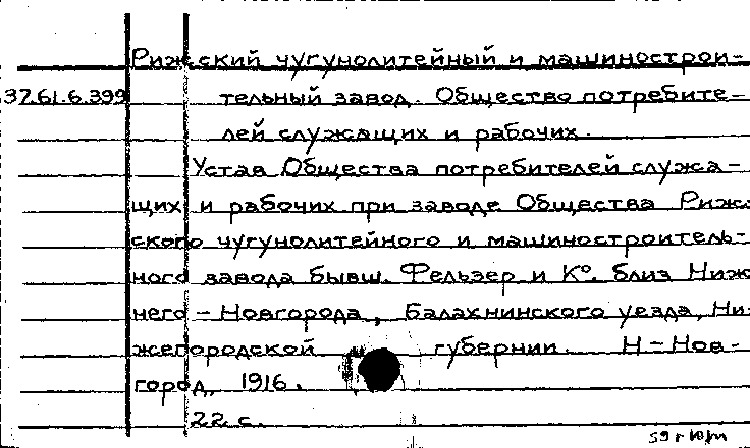 Рижский чугунолитейный и машинострои-
37.61.6.399 тельный завод. Общество потребите-
лей служащих и рабочих.
Устав Общества потребителей служа-
щих и рабочих при заводе Общества Риж-
ского чугунолитейного и машиностроитель-
ного завода бывш. Фельзер и К°. близ Ниж
него-Новгорода, Балахнинского уезда, Ни-
жегородской губернии. Н-Нов-
город, 1916.
22 с.